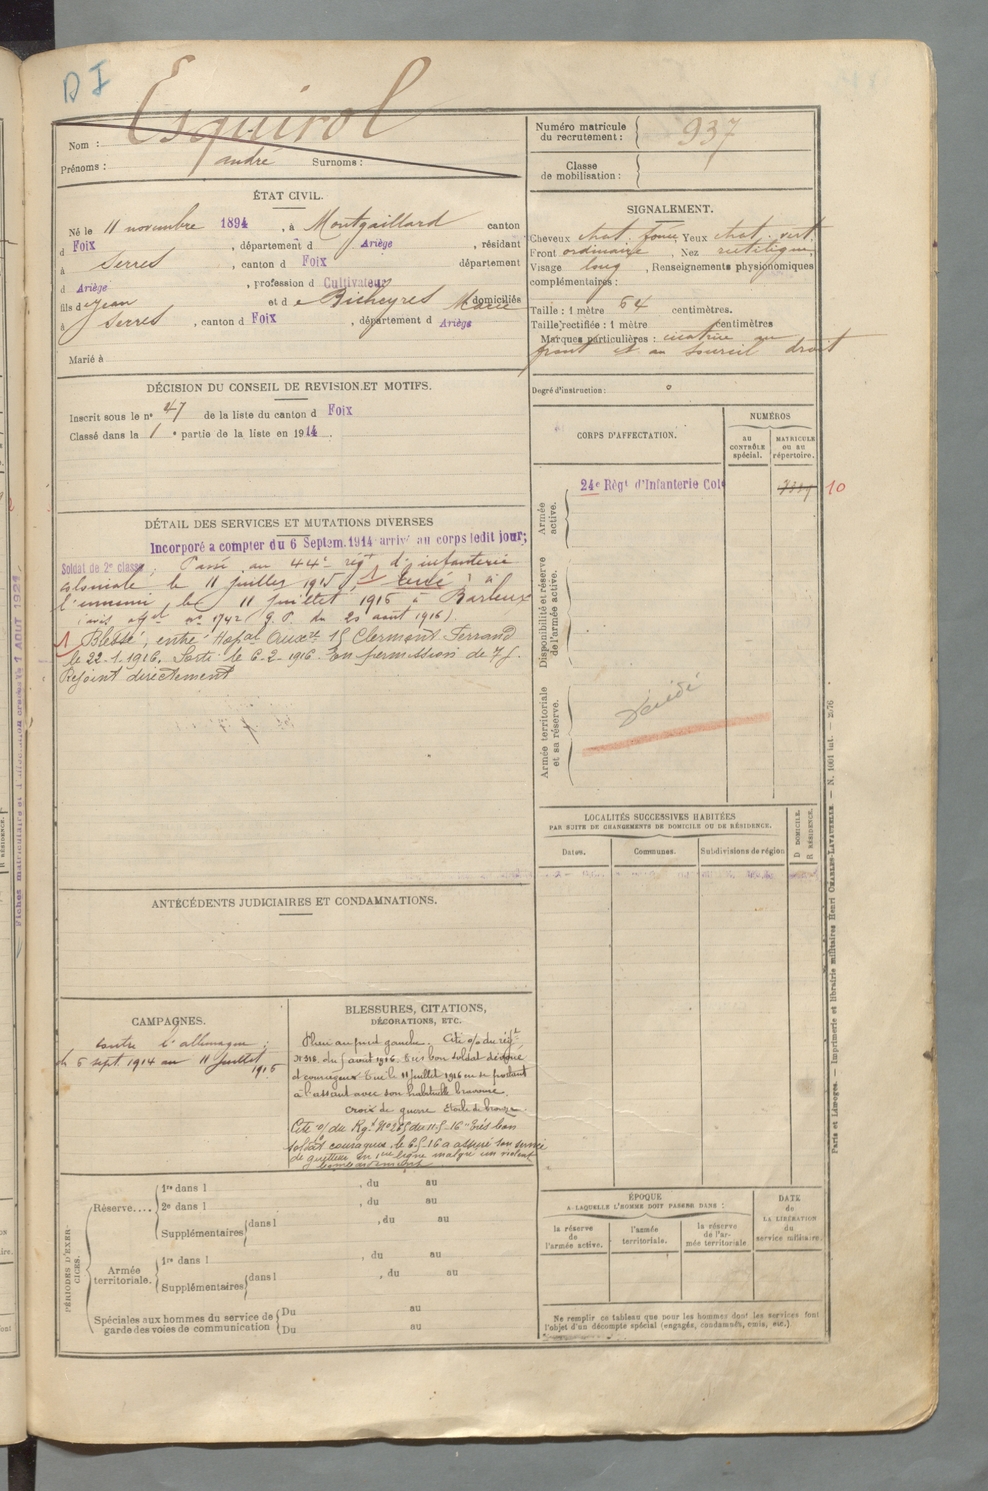 D I
Esquirol
Nom :
Prénoms : André Surnoms :
Numéro matricule du recrutement : 937
Classe de mobilisation :
ÉTAT CIVIL.
Né le 11 novembre 1894, à Montgaillard canton
d Foix, département d Ariège, résidant
à Serres, canton d Foix département
d Ariège, profession d Cultivateur
fils de Jean et de Bicheyres Marie domiciliés
à Serres, canton d Foix, département d Ariège
Marié à
SIGNALEMENT.
Cheveux chat. foncé Yeux chat. vert
Front ordinaire, Nez rectiligne,
Visage long, Renseignements physionomiques
complémentaires :
Taille : 1 mètre 64 centimètres.
Taille rectifiée : 1 mètre centimètres
Marques particulières : cicatrice au
front et au sourcil droit
Degré d'instruction : 0
DÉCISION DU CONSEIL DE REVISION ET MOTIFS.
Inscrit sous le n° 47 de la liste du canton d Foix
Classé dans la 1e partie de la liste en 1914.
CORPS D'AFFECTATION.
NUMÉROS
AU CONTRÔLE spécial.
MATRICULE OU AU répertoire.
Armée active.
24e Régt d'Infanterie Col
10
Disponibilité et réserve de l'armée active.
Armée territoriale et sa réserve.
Décédé
DÉTAIL DES SERVICES ET MUTATIONS DIVERSES
Incorporé a compter du 6 Septem. 1914 arrivé au corps ledit jour;
Soldat de 2e classe; Passé au 44e rég. d'infanterie
coloniale le 11 juillet 1915. 1 Tué à
l'ennemi le 11 juillet 1916 à Barleux
(avis offel n° 1742 (G. P. du 20 août 1916).
1 Blessé, entré Hopal Auxre 15 Clermont-Ferrand
le 22-1-1916. Sorti le 6-2-1916. En permission de 7 j.
Rejoint directement
LOCALITÉS SUCCESSIVES HABITÉES
PAR SUITE DE CHANGEMENTS DE DOMICILE OU DE RÉSIDENCE.
Dates.
Communes.
Subdivisions de région
D DOMICILE.
R RÉSIDENCE.
ANTÉCÉDENTS JUDICIAIRES ET CONDAMNATIONS.
CAMPAGNES.
contre l'allemagne :
du 6 sept. 1914 au 11 Juillet
1916
BLESSURES, CITATIONS,
DÉCORATIONS, ETC.
Plaie au pied gauche. Cité o/ du régt
N° 516 du 5 août 1916. Très bon soldat dévoué
et courageux. Tué le 11 juillet 1916 en se portant
à l'assaut avec son habituelle bravoure.
Croix de guerre Etoile de bronze
Cité o/ du Rgt N° 255 du 11-5-16 "Très bon
soldat courageux, le 6-5-16 a assuré son service
de guetteur en 1ère ligne malgré un violent
bombardement
PÉRIODES D'EXERCICES.
Réserve....
1re dans l , du au
2e dans l , du au
Supplémentaires dans l , du au
Armée territoriale.
1re dans l , du au
Supplémentaires dans l , du au
Spéciales aux hommes du service de garde des voies de communication
Du au
Du au
ÉPOQUE
A LAQUELLE L'HOMME DOIT PASSER DANS :
la réserve de l'armée active.
l'armée territoriale.
la réserve de l'armée territoriale
DATE de LA LIBÉRATION du service militaire.
Ne remplir ce tableau que pour les hommes dont les services font
l'objet d'un décompte spécial (engagés, condamnés, omis, etc.).
Paris et Limoges. — Imprimerie et librairie militaires Henri CHARLES-LAVAUZELLE. — N. 1001 int. — 2576